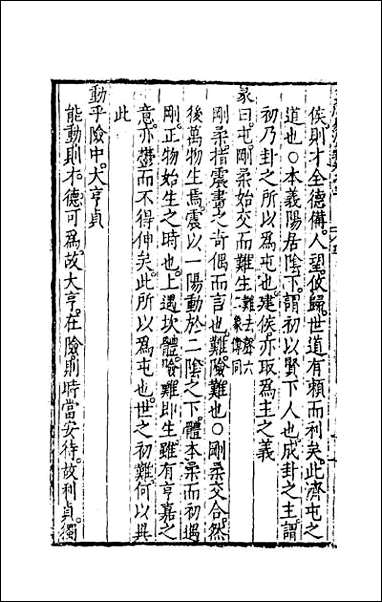 侯則才全德備人望攸歸世道有頼而利矣此濟屯之
道也○本義陽居陰下謂初以賢下人也成卦之主謂
初乃卦之所以爲屯也建侯亦取爲主之義
彖曰屯剛柔始交而難生難去聲六二象傳同
剛柔指震畫之奇偶而言也難險難也○剛柔交合然
後萬物生焉震以一陽動於二陰之下體本柔而初遇
剛正物始生之時也上遇坎體險難即生雖有亨嘉之
意亦鬱而不得伸矣此所以爲屯也世之初難何以異
此
動乎險中大亨貞
能動則才德可爲故大亨在險則時當安待故利貞獨